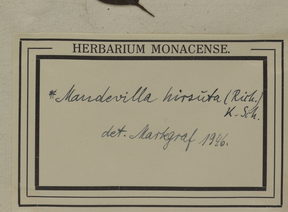 HERBARIUM MONACENSE.
*Mandevilla hirsuta (Rich.)
K. Sch.
det. Markgraf